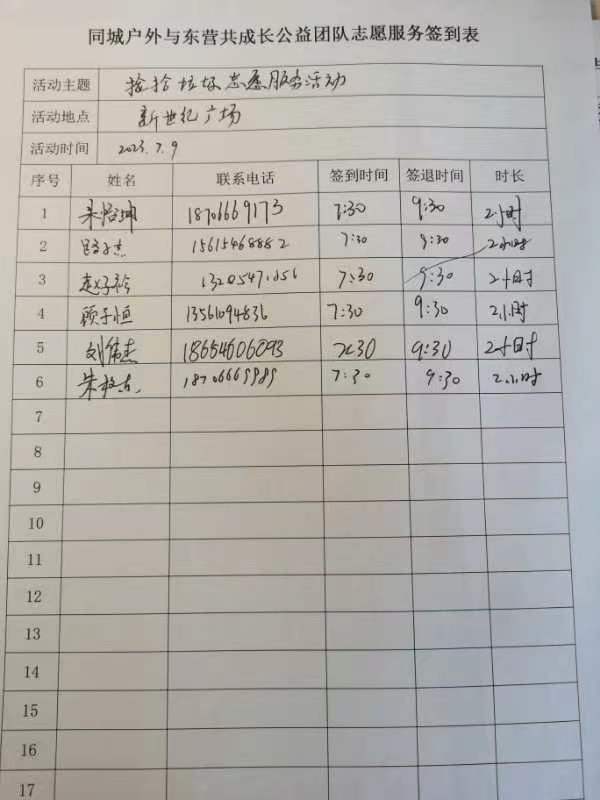 同城户外与东营共成长公益团队志愿服务签到表
活动主题 捡拾垃圾志愿服务活动
活动地点 新世纪广场
活动时间 2023.7.9
序号 姓名 联系电话 签到时间 签退时间 时长
1 18706669173 7:30 9:30 2小时
2 15615468882 7:30 9:30 2小时
3 7:30 9:30 2小时
4 顾子恒 13561094836 7:30 9:30 2小时
5 刘伟杰 18654606093 7:30 9:30 2小时
6 18706669989 7:30 9:30 2小时
7
8
9
10
11
12
13
14
15
16
17